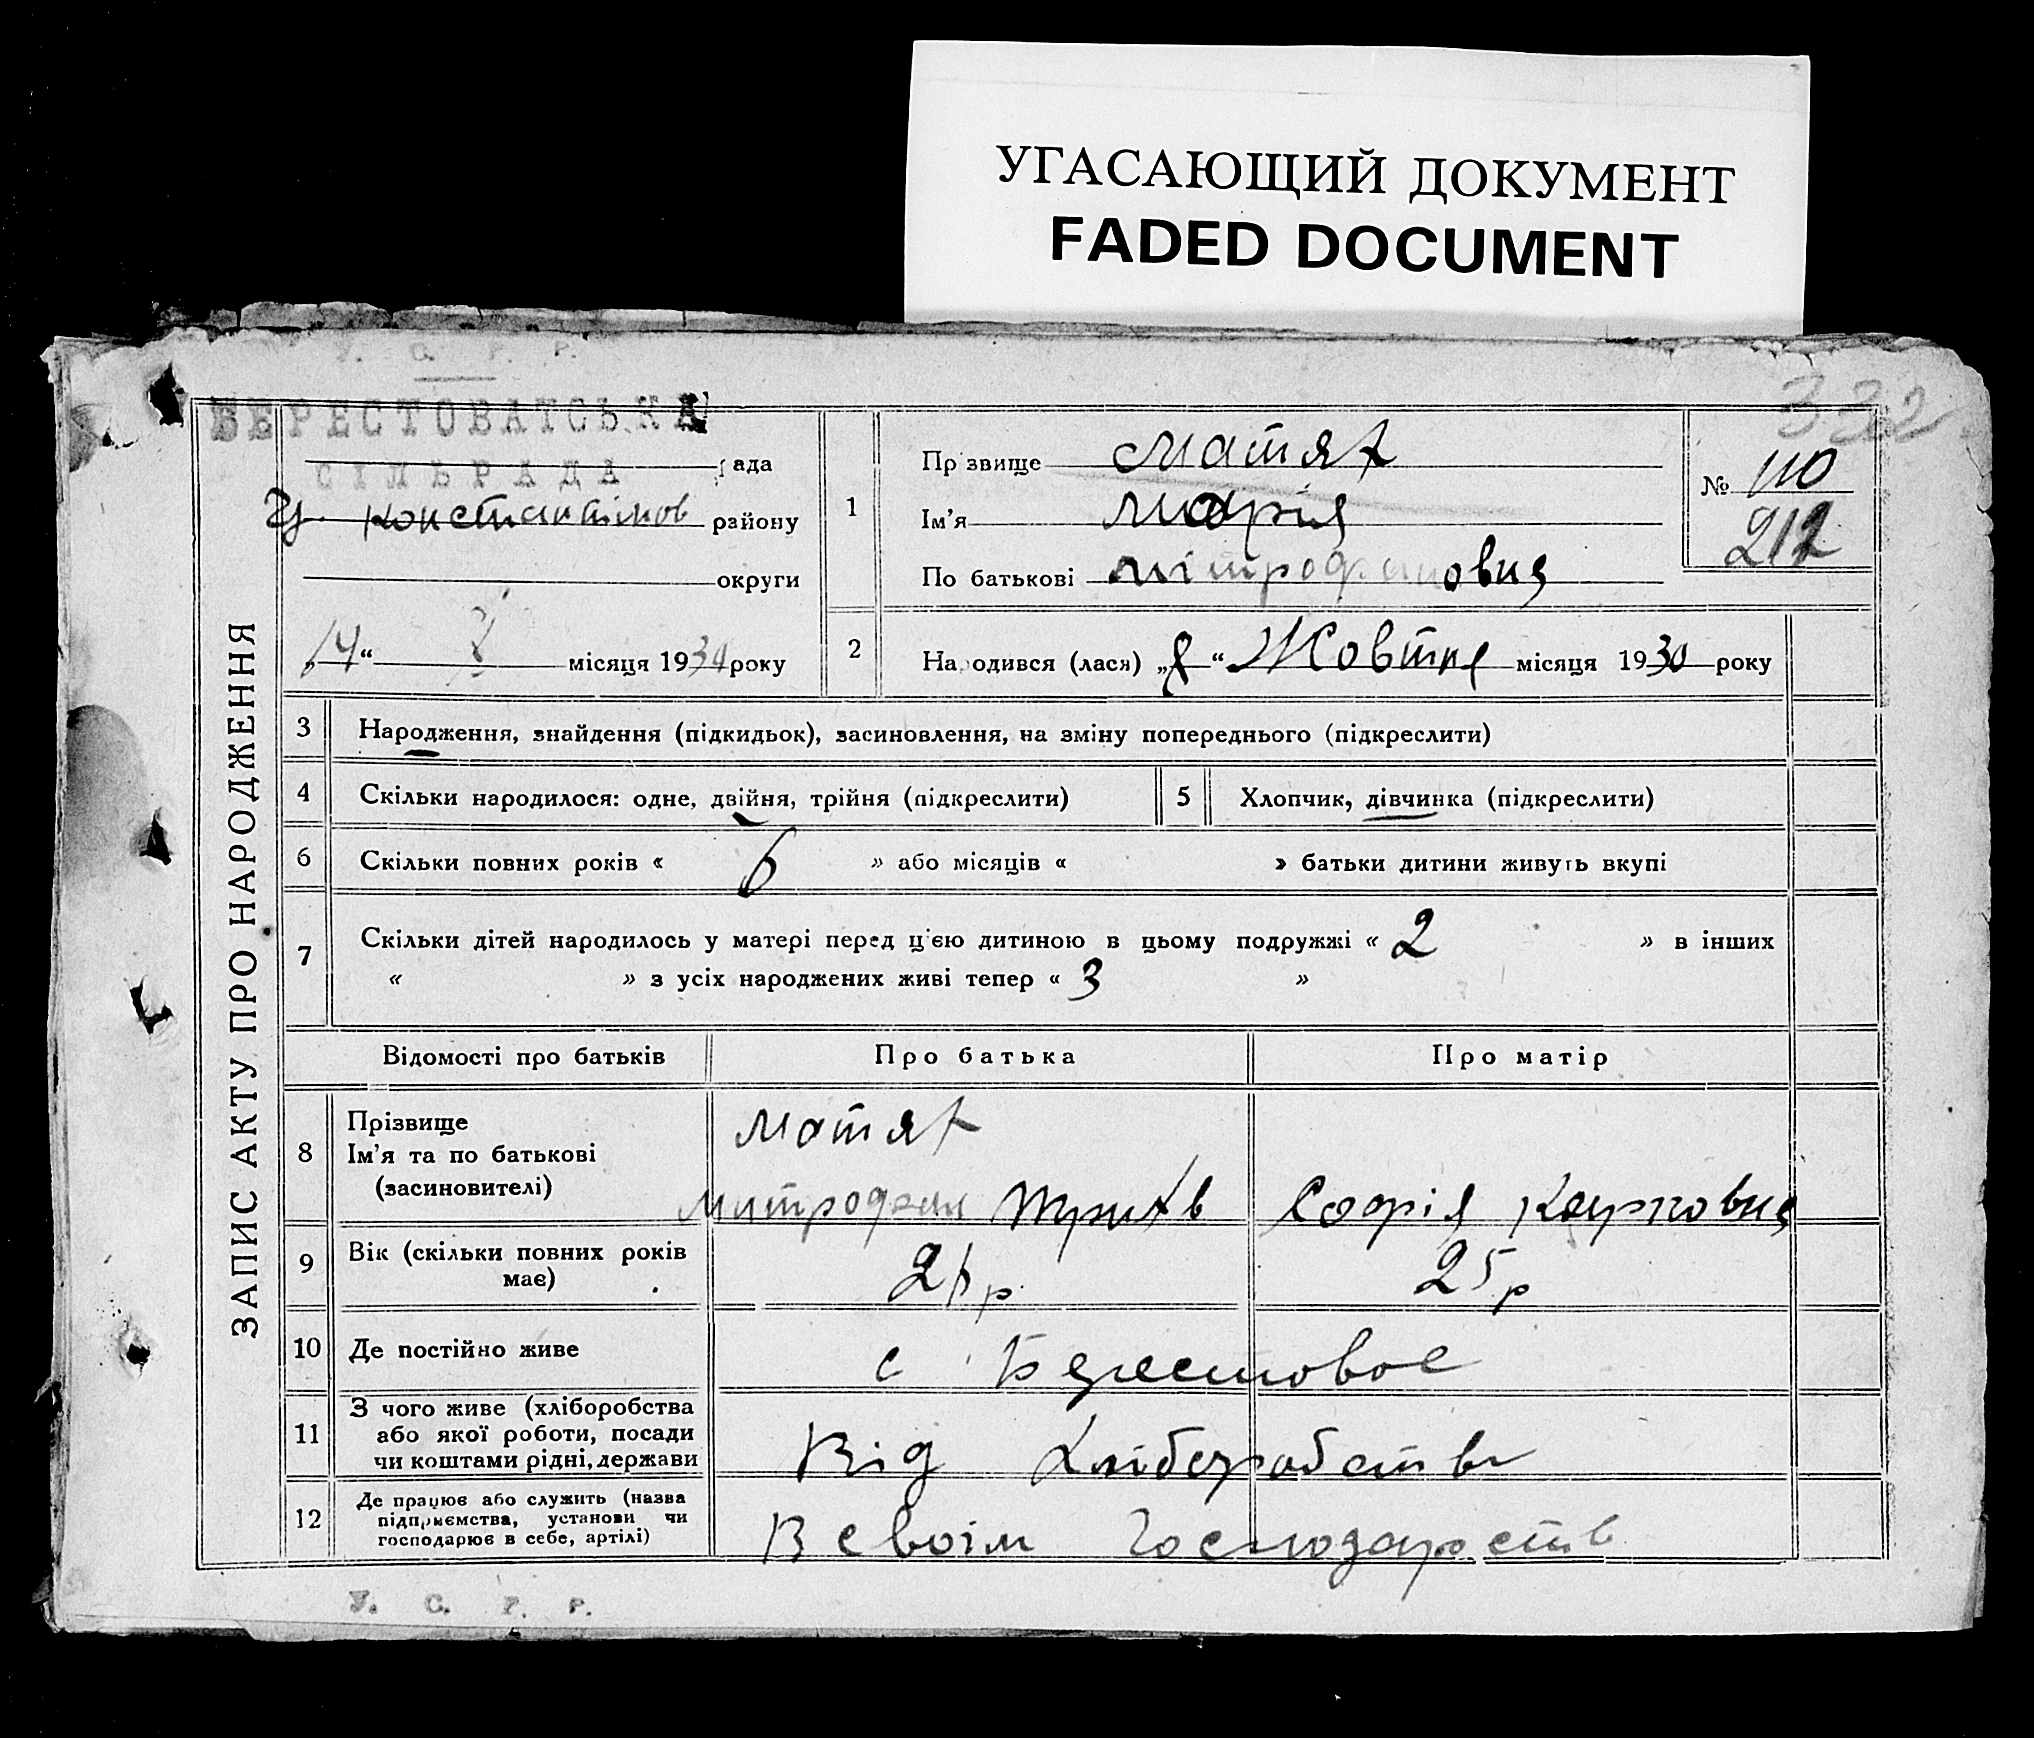 УГАСАЮЩИЙ ДОКУМЕНТ
FADED DOCUMENT
У. С. Р. Р.
332
БЕРЕСТОВАТСЬКА
СІЛЬРАДА
рада
Ч. константінов району
округи
„14“ X місяця 1930 року
ЗАПИС АКТУ ПРО НАРОДЖЕННЯ
1
Прізвище Матях
Ім'я Марія
По батькові Мітрофановна
№ 110
212
2
Народився (лася) „8“ Жовтня місяця 1930 року
3 Народження, знайдення (підкидьок), засиновлення, на зміну попереднього (підкреслити)
4 Скільки народилося: одне, двійня, трійня (підкреслити) 5 Хлопчик, дівчинка (підкреслити)
6 Скільки повних років « 6 » або місяців « » батьки дитини живуть вкупі
7 Скільки дітей народилось у матері перед ц'єю дитиною в цьому подружжі « 2 » в інших
« » з усіх народжених живі тепер « 3 »
Відомості про батьків Про батька Про матір
8 Прізвище
Ім'я та по батькові
(засиновителі)
Матях
Митрофан Софія Карповна
9 Вік (скільки повних років має) 26 р 25 р
10 Де постійно живе с Берестовое
11 З чого живе (хліборобства
або якої роботи, посади
чи коштами рідні, держави
Від хліборобств
12 Де працює або служить (назва
підприємства, установи чи
господарює в себе, артілі)
В своїм господарств
У. С. Р. Р.